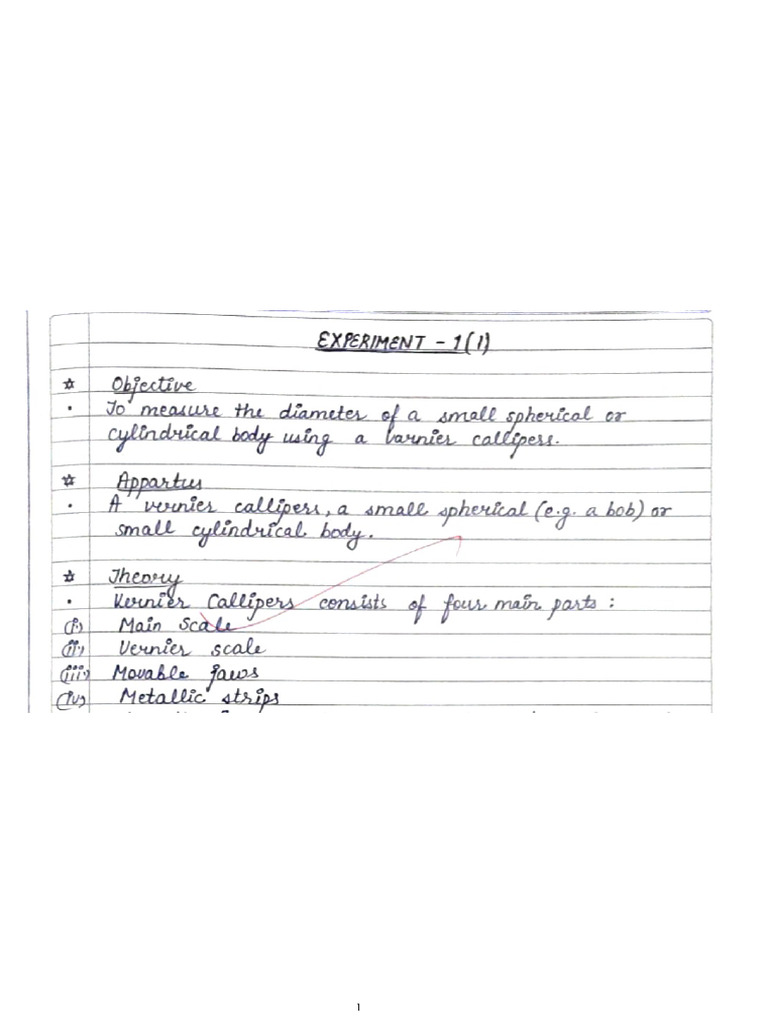 EXPERIMENT - 1(1)
☆ Objective
• To measure the diameter of a small spherical or
cylindrical body using a varnier callipers.
☆ Appartus
• A vernier callipers, a small spherical (e.g. a bob) or
small cylindrical body.
☆ Theory
• Vernier Callipers consists of four main parts :
(i) Main Scale
(ii) Vernier scale
(iii) Movable jaws
(iv) Metallic strips
1